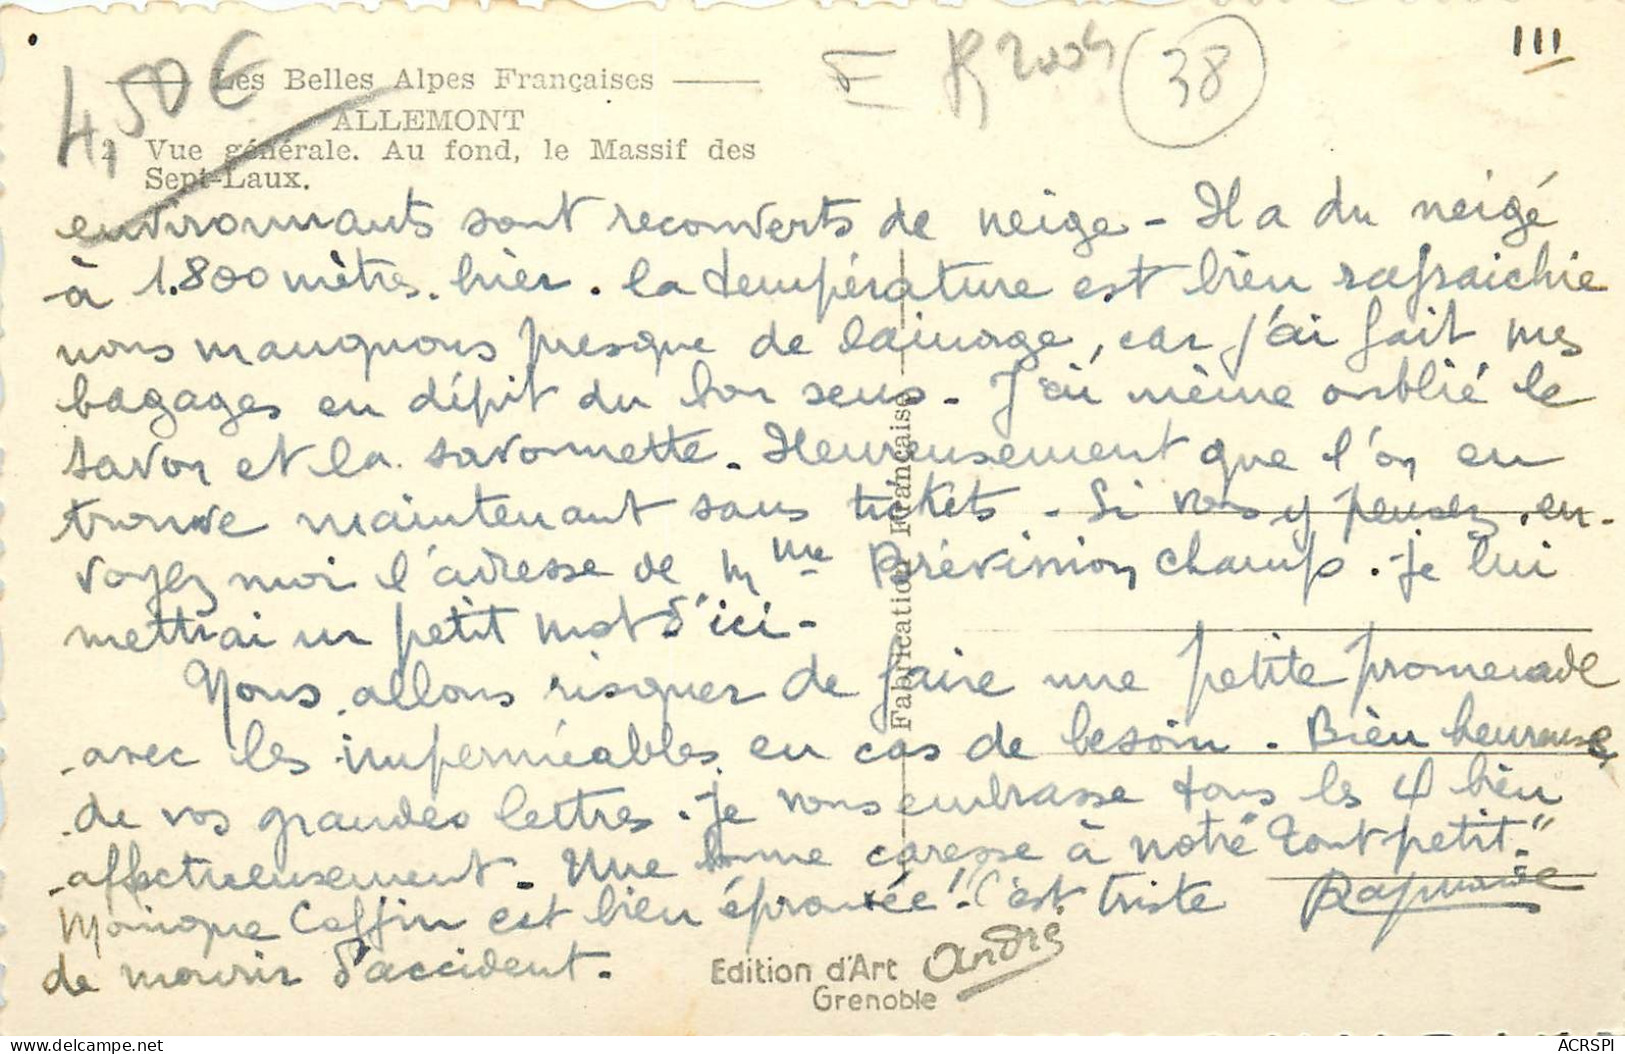 III
4,50€
38
Les Belles Alpes Françaises
ALLEMONT
2 Vue générale. Au fond, le Massif des
Sept-Laux.
environnants sont recouverts de neige - Il a du neigé
à 1.800 mètres hier. la température est bien rafraichie
nous manquons presque de lainage, car j'ai fait mes
bagages en dépit du bon sens - J'ai même oublié le
savon et la savonnette - Heureusement que l'on en
trouve maintenant sans tickets - Si vous y pensez, en-
voyez moi l'adresse de Mme Champ. Je lui
mettrai un petit mot d'ici -
Nous allons risquer de faire une petite promenade
avec les imperméables en cas de besoin. Bien heureuse
de vos grandes lettres. Je vous embrasse tous les 4 bien
affectueusement - Une bonne caresse à notre "Tout petit"
Monique Caffin est bien éprouvée! C'est triste
de mourir d'accident.
Raymonde
Fabrication Française
Edition d'Art André
Grenoble
ACRSPI